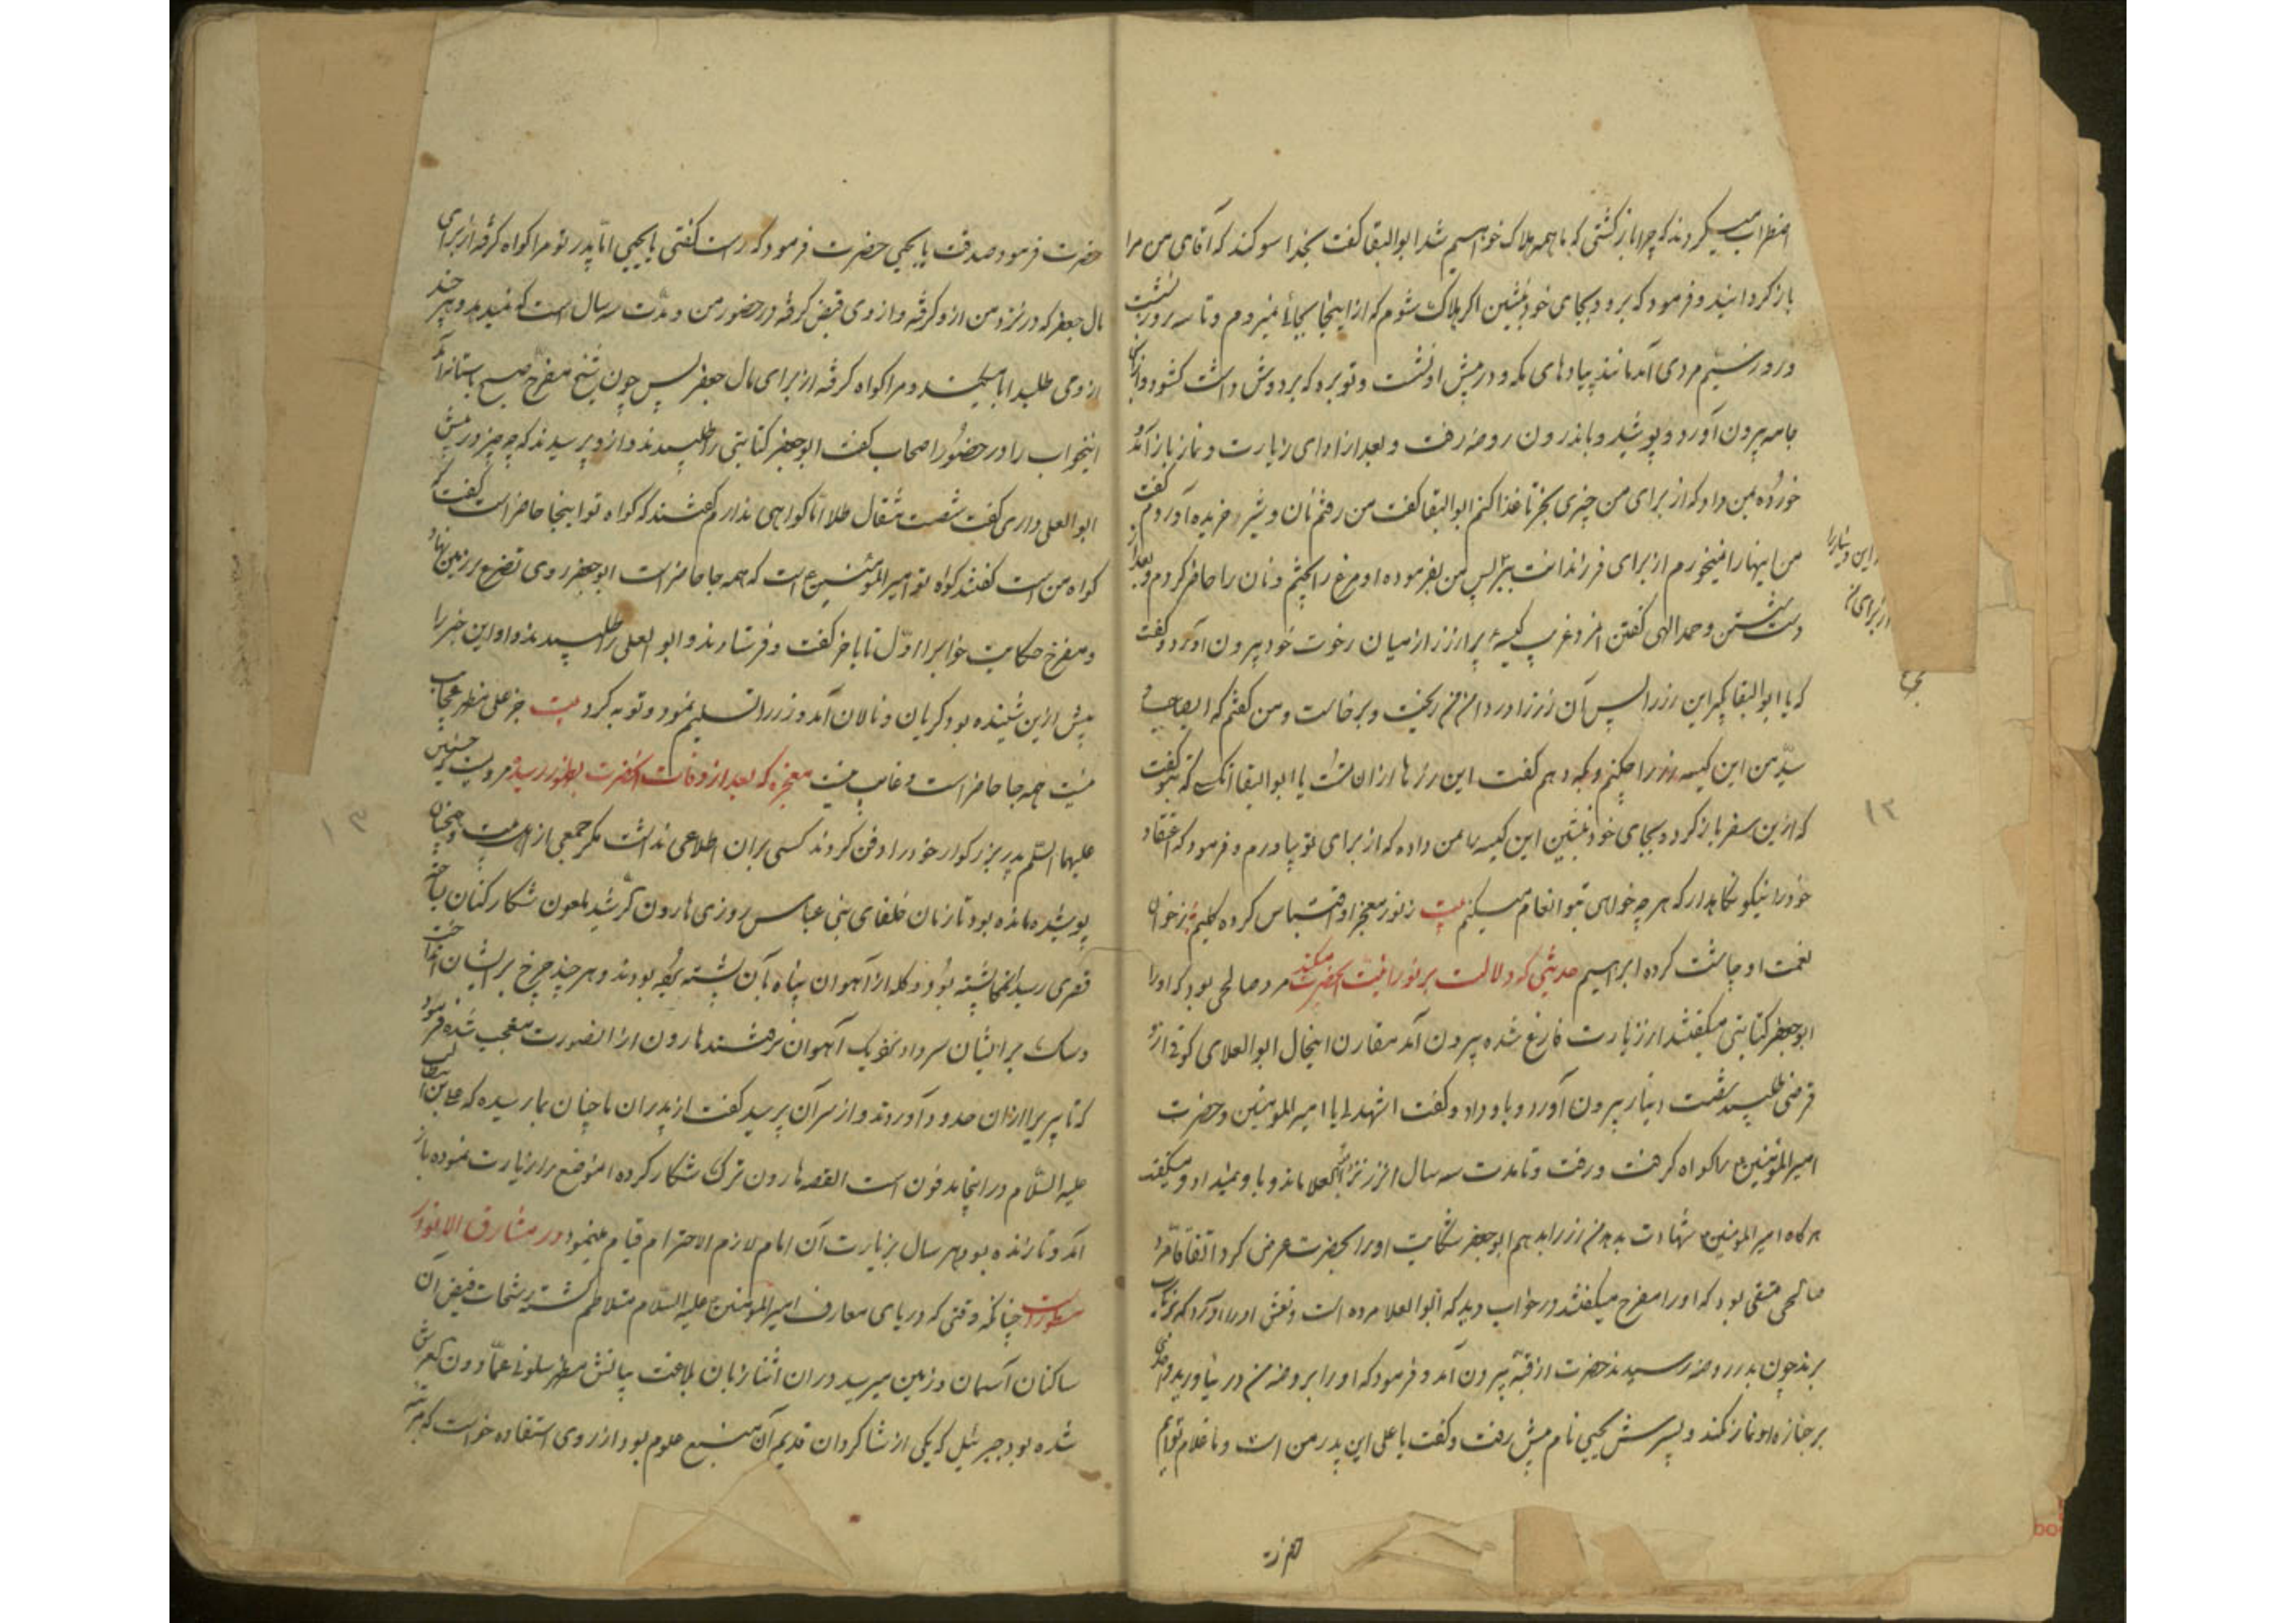 اضطراب میکردند که چرا باز گشتی که ما همه هلاک خواهیم شد ابوالبقا گفت بخدا سوکند که آقای من مرا
باز کردانید و فرمود که برو و بجای خود بنشین اکر هلاک شوم که از اینجا بجائی نمیروم و تا سه روز نشست
و روز سیّم مردی آمد مانند پیادهای مکه و در پیش او نشست و توبره که بر دوش داشت کشود و از آن
جامه بیرون آورد و پوشید و باندرون روضه رفت و بعد از ادای زیارت و نماز باز آمد و
خورده بمن داد که از برای من چیزی بخر تا غذا کنم ابوالبقا گفت من رفتم نان و شیر خریده آوردم گفت
من اینها را نمیخورم از برای فرزندانت ببر پس من بفرموده او مرغ را پختم و نان را حاضر کردم و بعد از
دست شستن و حمد الهی گفتن کیسه پر از زر از میان رخوت خود بیرون آورد و گفت
که یا ابوالبقا بگیر این زر را پس آن زر را در دامن من ریخت و برخاست و من گفتم که ایصاحب و
سیّد من این کیسه زر را چکنم و بکه دهم گفت این زرها از ان تست یا ابوالبقا انکس که بتو گفت
که ازین سفر باز کرد و بجای خود بنشین این کیسه را بمن داده که از برای تو بیاورم و فرمود که اعتقاد
خود را نیکو نکاهدار که هر چه خواهی بتو انعام میکنم بیت ز نور معجز او اقتباس کرده کلیم ز خوان
نعمت او چاشت کرده ابراهیم حدیثی که دلالت بر نورانیّت آنحضرت میکند مرد صالحی بود که او را
ابوجعفر کتابتی میکفتند از زیارت فارغ شده بیرون آمد مقارن اینحال ابوالعلای کوفی ازو
قرضی طلبید شصت دینار بیرون آورد و باو داد و گفت اشهد لی یا امیرالمؤمنین و حضرت
امیرالمؤمنین را کواه کرفت و رفت و تا مدت سه سال آن زر نزد ابوالعلا ماند و باو نمیداد و میکفت
هرکاه امیرالمؤمنین شهادت بدهد من زر را بدهم ابوجعفر شکایت او را بحضرت عرض کرد اتفاقاً مرد
صالحی متقی بود که او را مفرح میکفتند در خواب دید که ابوالعلا مرده است و نعش او را آوردند که بزیارت
برند چون بدر روضه رسیدند حضرت از قبّه بیرون آمد و فرمود که او را بروضه من در نیاورید و احدی
بر جنازه او نماز نکند و پسرش یحیی نام پیش رفت و گفت یا علی این پدر من است و ما غلام توایم
حضرت
این دینار را
از برای من
۱۲
حضرت فرمود صدقت یا یحیی حضرت فرمود که راست گفتی یا یحیی امّا پدر تو مرا کواه کرفته از برای
مال جعفر که در نزد من ازو کرفته و از وی قبض کرفته در حضور من و مدّت سه سال است که نمیدهد و هر چند
از وی طلبید ابا میکند و مرا کواه کرفته از برای مال جعفر پس چون شیخ مفرح صبح باستانه آمد
اینخواب را در حضور اصحاب گفت ابوجعفر کتابتی را طلبیدند و ازو پرسیدند که چه چیز در پیش
ابوالعلی داری گفت شصت مثقال طلا امّا کواهی ندارم گفتند که کواه تو اینجا حاضر است گفت که
کواه من است گفتند کواه تو امیرالمؤمنین است که همه جا حاضر است ابوجعفر روی تضرع بر زمین نهاد
و مفرح حکایت خواب را از اوّل تا باخر گفت و فرستادند و ابوالعلی را طلبیدند و او این خبر را
پیش ازین شنیده بود کریان و نالان آمد و زر را تسلیم نمود و توبه کرد بیت جز علی مظهر عجایب
نیست همه جا حاضر است و غایب نیست معجزه که بعد از وفات آنحضرت بظهور رسیده مرویست که حسنین
علیهما السّلم پدر بزرکوار خود را دفن کردند کسی بران اطلاعی نداشت مکر جمعی از اهل بیت و همچنان
پوشیده مانده بود تا زمان خلفای بنی عباس روزی هارون الرّشید ملعون شکار کنان
رسید پشته بود و کله از آهوان پناه بآن پشته برده بودند و هر چند چرخ بر ایشان انداخت
و سک بر ایشان سر داد نزدیک آهوان نرفتند هارون از انصورت متعجب شده فرمود
که تا پیریرا از ان حدود آوردند و از سر آن پرسید گفت از پدران ما چنان بما رسیده که علی بن ابیطالب
علیه السّلام در اینجا مدفون است القصه هارون ترک شکار کرده انموضع را زیارت نموده باز
آمد و تا زنده بود هر سال بزیارت آن امام لازم الاحترام قیام مینمود در مشارق الانوار
مسطور است چنانکه وقتی که دریای معارف امیرالمؤمنین علیه السّلام متلاطم کشته رشحات فیض آن
ساکنان آسمان و زمین میرسید در ان اثنا زبان بلاغت بیانش مظهر سلونی عمّا دون العرش
شده بود جبرئیل که یکی از شاکردان قدیم آن منبع علوم بود از روی استفاده خواست که مرتبه
۱۳